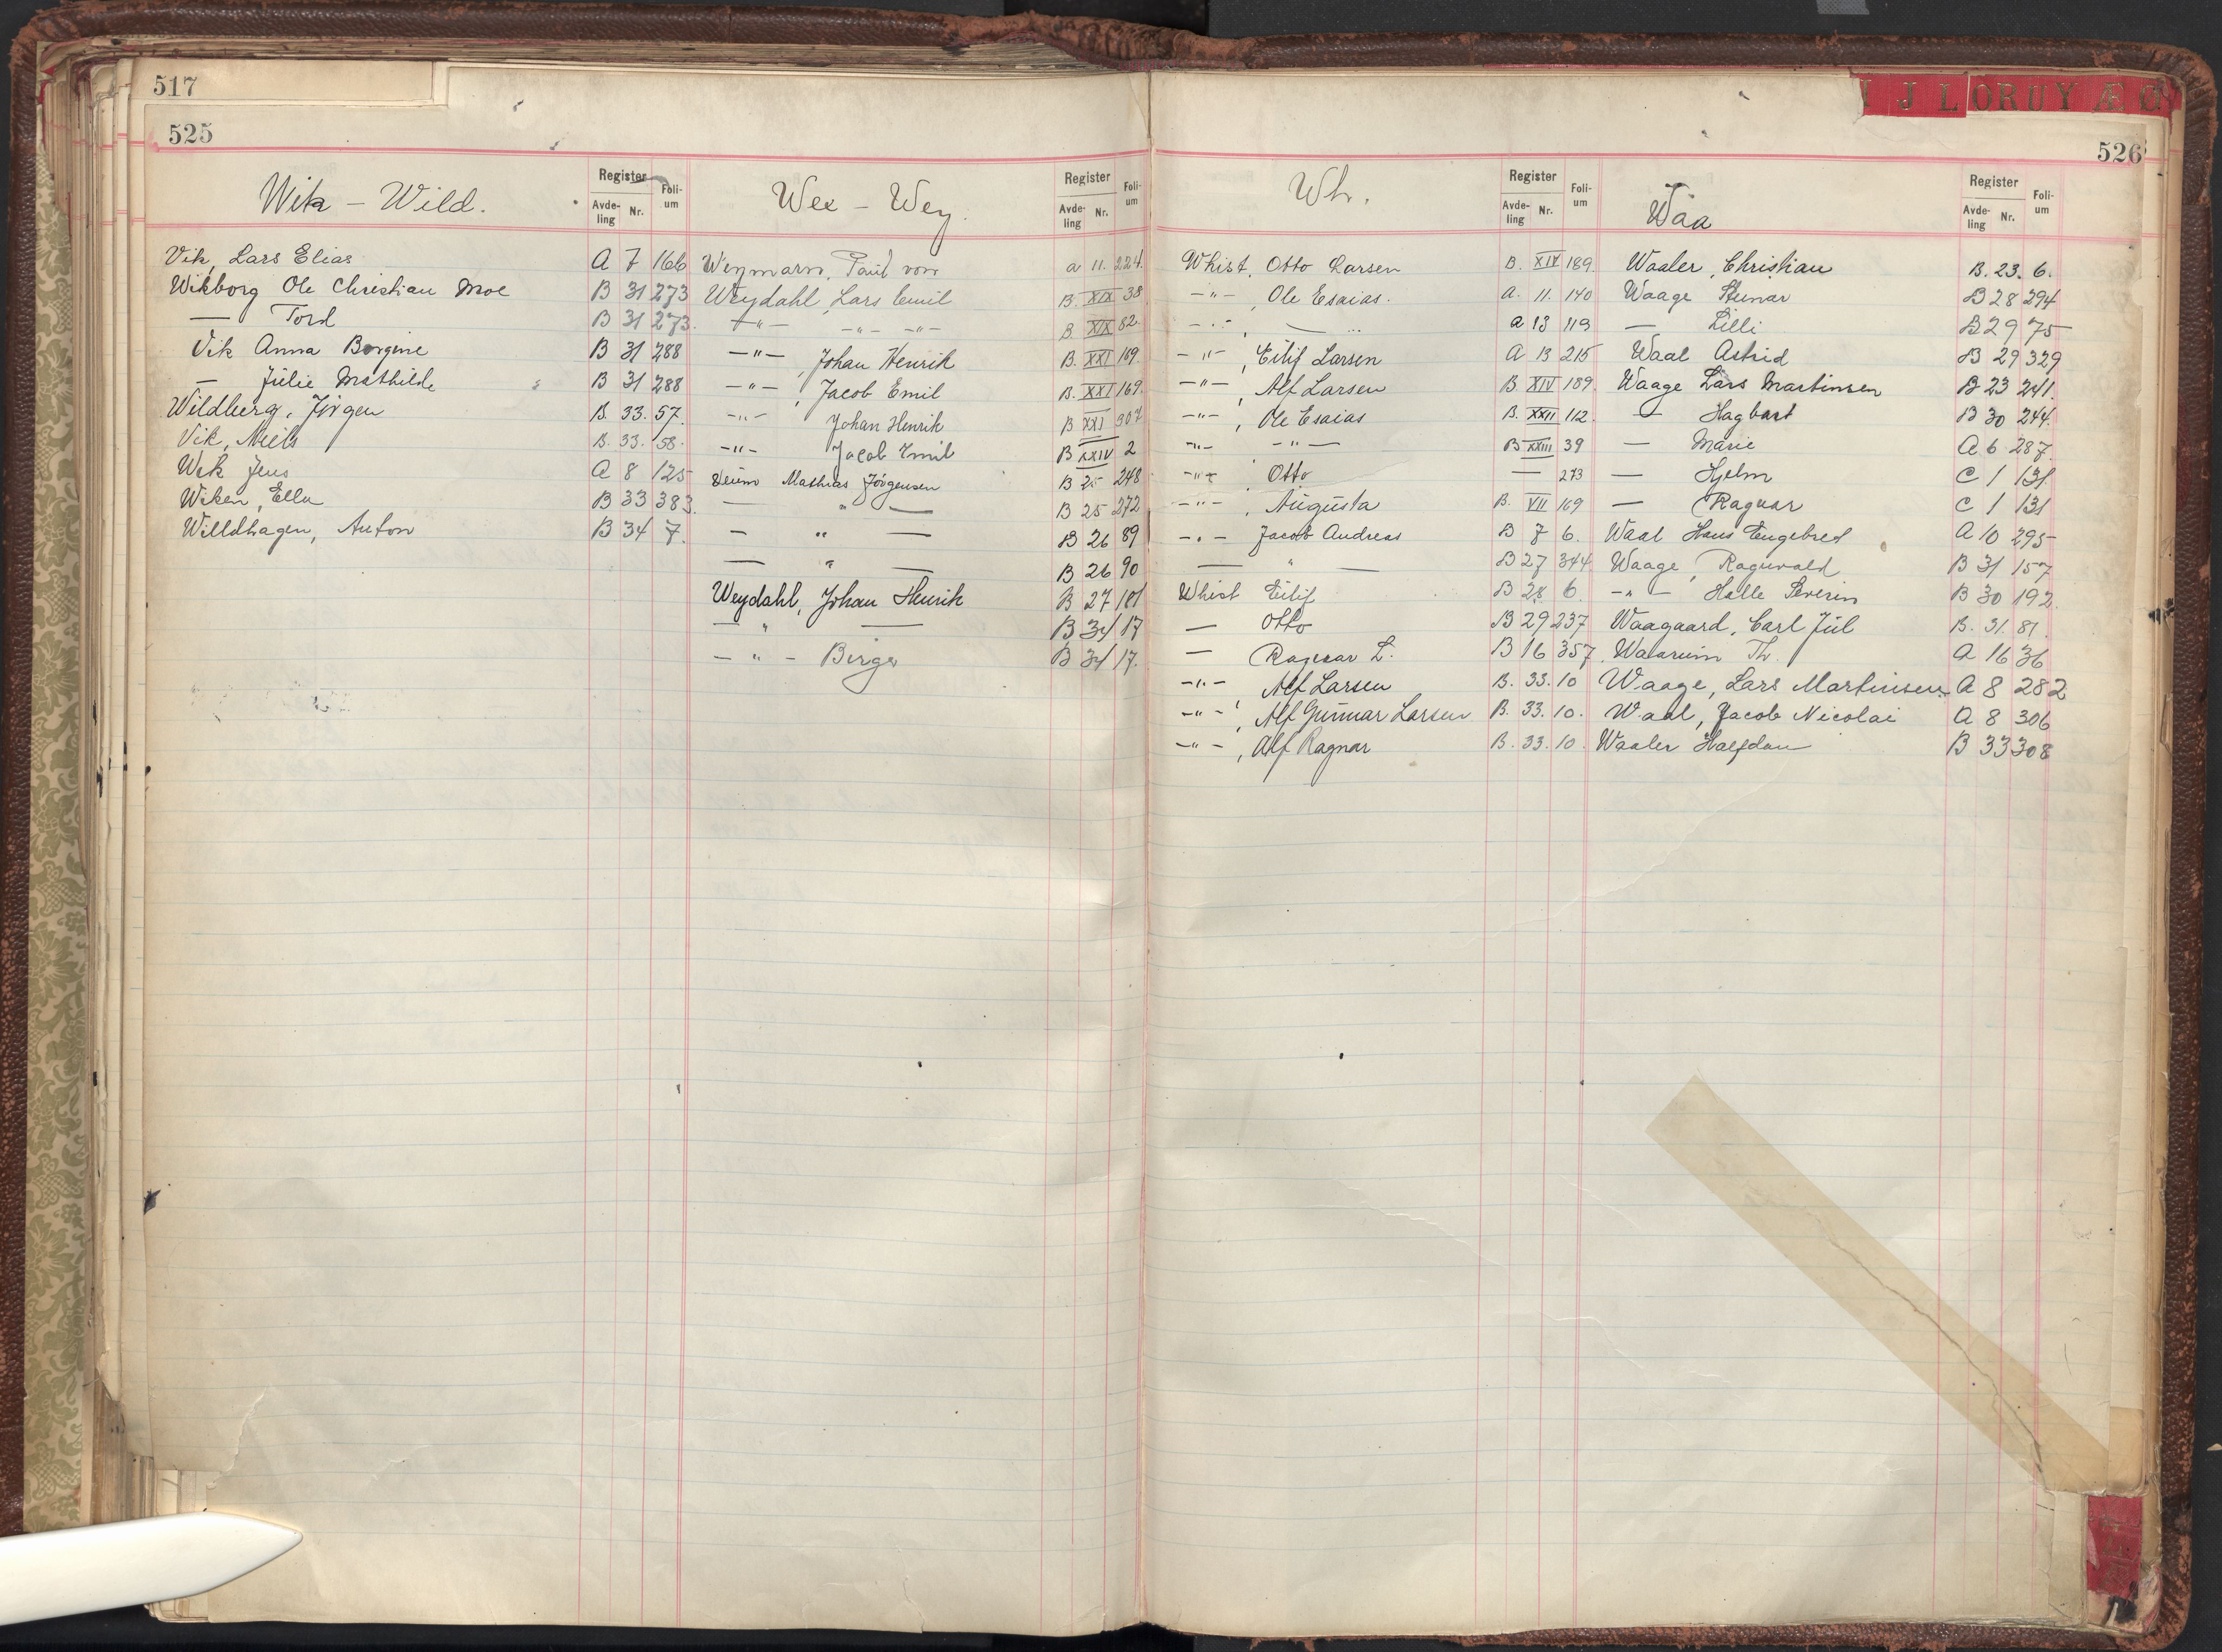 517
525
Wik – Wild.
Register
Avde-
ling
Nr.
Foli-
um
Vik, Lars Elias A 7 166
Wikborg Ole Christian Moe B 31 273
— Tord B 31 273.
Vik Anna Borgine B 31 288
— Julie Mathilde B 31 288
Wildberg, Jörgen B. 33. 57.
Vik, Niels B. 33. 58.
Wik Jens A 8 125
Wiken, Ella B 33 383.
Willdhagen, Anton B 34 7.
Wee – Wey.
Register
Avde-
ling
Nr.
Foli-
um
Weymarn, Paul von a 11. 224.
Weydahl, Lars Emil B. XIX 38
—"— —"— —"— B XIX 82.
—"—, Johan Henrik B. XXI 169.
—"—, Jacob Emil B. XXI 169.
—"— Johan Henrik B XXI 307
—"— Jacob Emil B XXIV 2
Mathias Jörgensen B 25 248
— " — B 25 272
— " — B 26 89
— " — B 26 90
Weydahl, Johan Henrik B 27 181
— " — B 34 17
— " — Birger B 34 17.
526
I J L O R U Y Æ Ø
Wh.
Register
Avde-
ling
Nr.
Foli-
um
Whist, Otto Larsen B. XIV 189.
—"— Ole Esaias. A. 11. 140
—"—, — " a 13 119
—"—, Eilif Larsen A 13 215
—"—, Alf Larsen B. XIV 189.
—"—, Ole Esaias B. XXII 112
—"— —"— B XXIII 39
—"— Otto — 273
—"—, Augusta B. VII 169
—"— Jacob Andreas B 7 6.
— " — B 27 344
Whist Eilif B 28 6.
— Otto B 29 237
— Ragnar L. B 16 357.
—"— Alf Larsen B. 33. 10
—"—, Alf Gunnar Larsen B. 33. 10.
—"—, Alf Ragnar B. 33. 10.
Waa
Register
Avde-
ling
Nr.
Foli-
um
Waaler, Christian B. 23. 6.
Waage Steinar B 28 294
— Lilli B 29 75
Waal Astrid B 29 329
Waage Lars Martinsen B 23 241.
— Hagbart B 30 244.
— Marie A 6 287.
— Hjelm C 1 131.
— Ragnar C 1 131
Waal Hans Engebret A 10 295
Waage, Ragnvald B 31 157
—"— Halle Severin B 30 192.
Waagaard, Carl Jul B. 31. 81.
Waarum Th. A 16 36
Waage, Lars Martinsen A 8 282
Waal, Jacob Nicolai A 8 306
Waaler Halfdan B 33 308